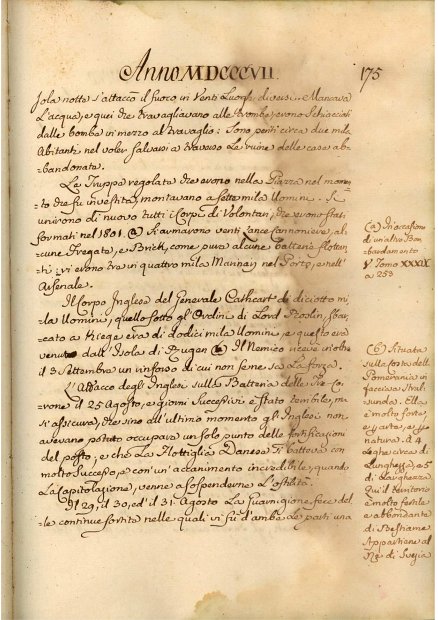 Anno MDCCCVII.
175
sola notte s'attaccò il fuoco in Venti Luoghi diversi. Mancava
L'acqua, e quei che travagliavano alle trombe, erono schiacciati
dalle bombe in mezzo al travaglio: Sono periti circa due mila
Abitanti nel voler salvarsi a traverso le ruine delle case ab=
=bandonate.
Le Truppe regolate che erono nella Piazza nel momen=
=to che fu investita, montavano a sette mila Uomini. Si
unirono di nuovo tutti i Corpi di Volontari, che erono stati
formati nel 1801. (a) Si armavono venti Lance cannoniere, al=
=cune Fregate, e Brick, come pure alcune batterie flottan=
=ti; vi erono tre in quattro mila Marinari nel Porto, e nell'
Arsenale.
Il Corpo Inglese del Generale Cathcart di diciotto mi=
=la Uomini, quello sotto gl'Ordini di Lord Roslin, sbar=
=cato a Kiege era di dodici mila Uomini, e questo era
venuto dall'Isola di Rugen (b). Il Nemico ricevè inoltre
il 3 Settembre un rinforzo di cui non se ne sa La forza.
L'Attacco degl'Inglesi sulla Batteria delle Tre Co=
=rone il 25 Agosto, e giorni successivi è stato terribile, mi
si assicura, che sino all'ultimo momento gl'Inglesi non
avevano potuto occupare un solo punto delle fortificazioni
del posto, e che La Flottiglia Danese si batteva con
molto successo, e con un'accanimento incredibile, quando
La Capitolazione, venne a sospenderne L'ostilità.
Il 29, il 30, ed il 31 Agosto La Guarnigione fece del=
=le continue sortite nelle quali vi fu d'ambe le parti una
(a) In occasione
di un altro Bom
bardamento
V Tomo XXXIX
a 253
(b) Situata
sulla costa della
Pomerania in
faccia a Stral
sunda. Ella
è molto forte,
e p arte, e p
natura. à 4
Leghe circa di
Lunghezza, e 5
di Larghezza
Qui il territorio
è molto fertile
e abbondante
di Bestiame
Appartiene al
Rè di Svezia